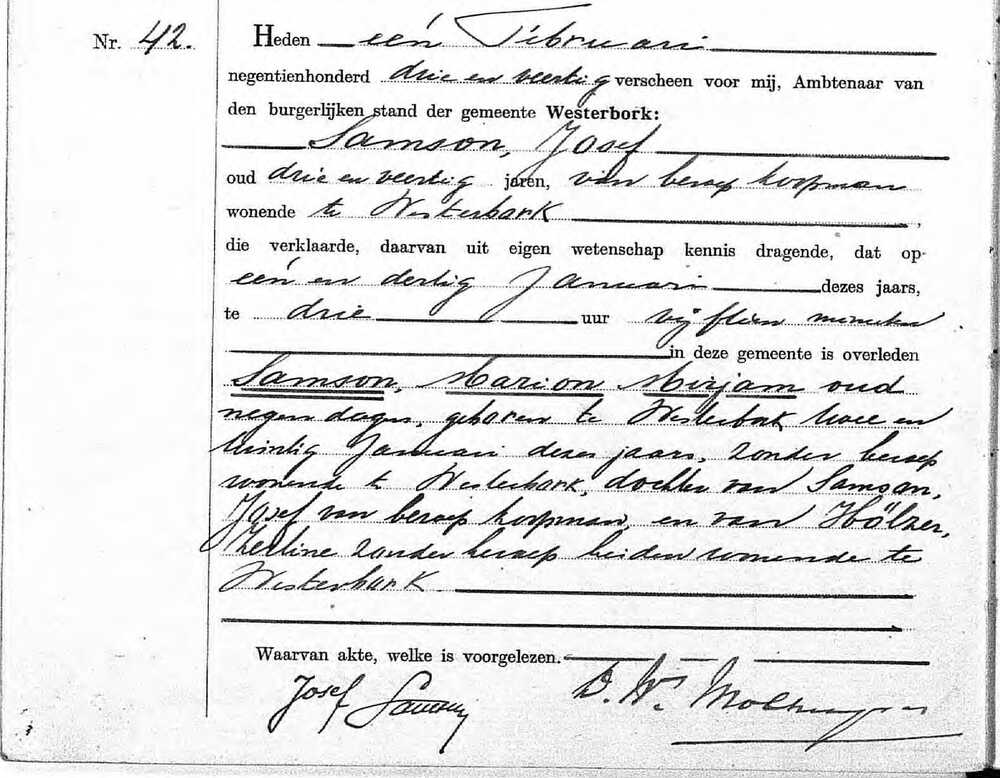 Nr. 42.
Heden een Februari
negentienhonderd drie en veertig verscheen voor mij, Ambtenaar van
den burgerlijken stand der gemeente Westerbork:
Samson, Josef
oud drie en veertig jaren, van beroep koopman
wonende te Westerbork,
die verklaarde, daarvan uit eigen wetenschap kennis dragende, dat op
eén en dertig Januari dezes jaars,
te drie uur vijftien minuten
in deze gemeente is overleden
Samson, Marion Mirjam oud
negen dagen, geboren te Westerbork twee en
twintig Januari dezes jaars, zonder beroep
wonende te Westerbork, dochter van Samson,
Josef van beroep koopman, en van Hölzer,
Zerline zonder beroep beiden wonende te
Westerbork
Waarvan akte, welke is voorgelezen.
Josef Samson
D. W.